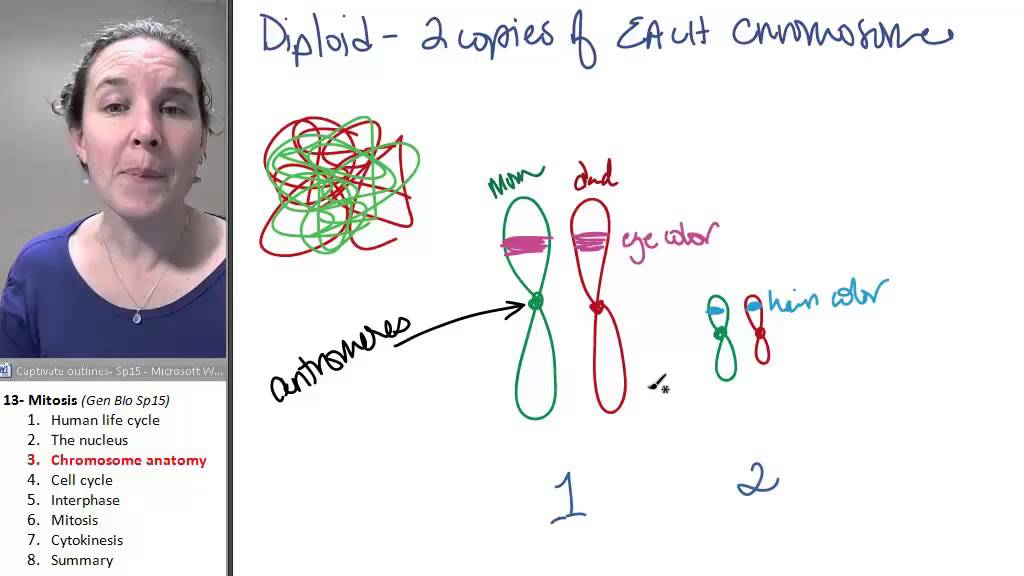 Diploid - 2 copies of EACH chromosome
mom
dad
eye color
hair color
centromeres
1
2
Captivate outlines- Sp15 - Microsoft W...
13- Mitosis (Gen Bio Sp15)
1. Human life cycle
2. The nucleus
3. Chromosome anatomy
4. Cell cycle
5. Interphase
6. Mitosis
7. Cytokinesis
8. Summary